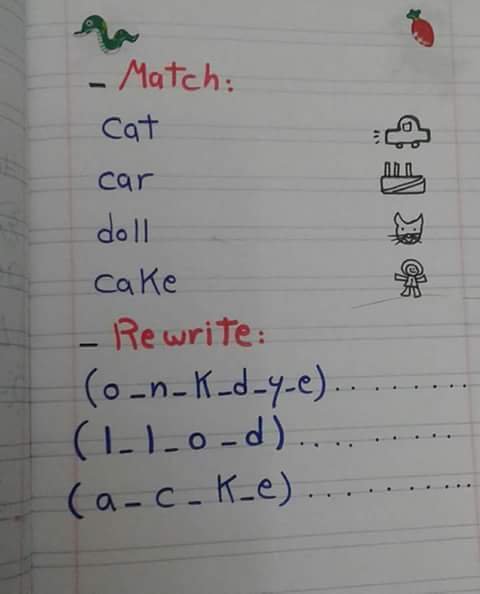 - Match:
cat
car
doll
cake
- Rewrite:
(o-n-k-d-y-e).........
(l-l-o-d).........
(a-c-k-e)..........